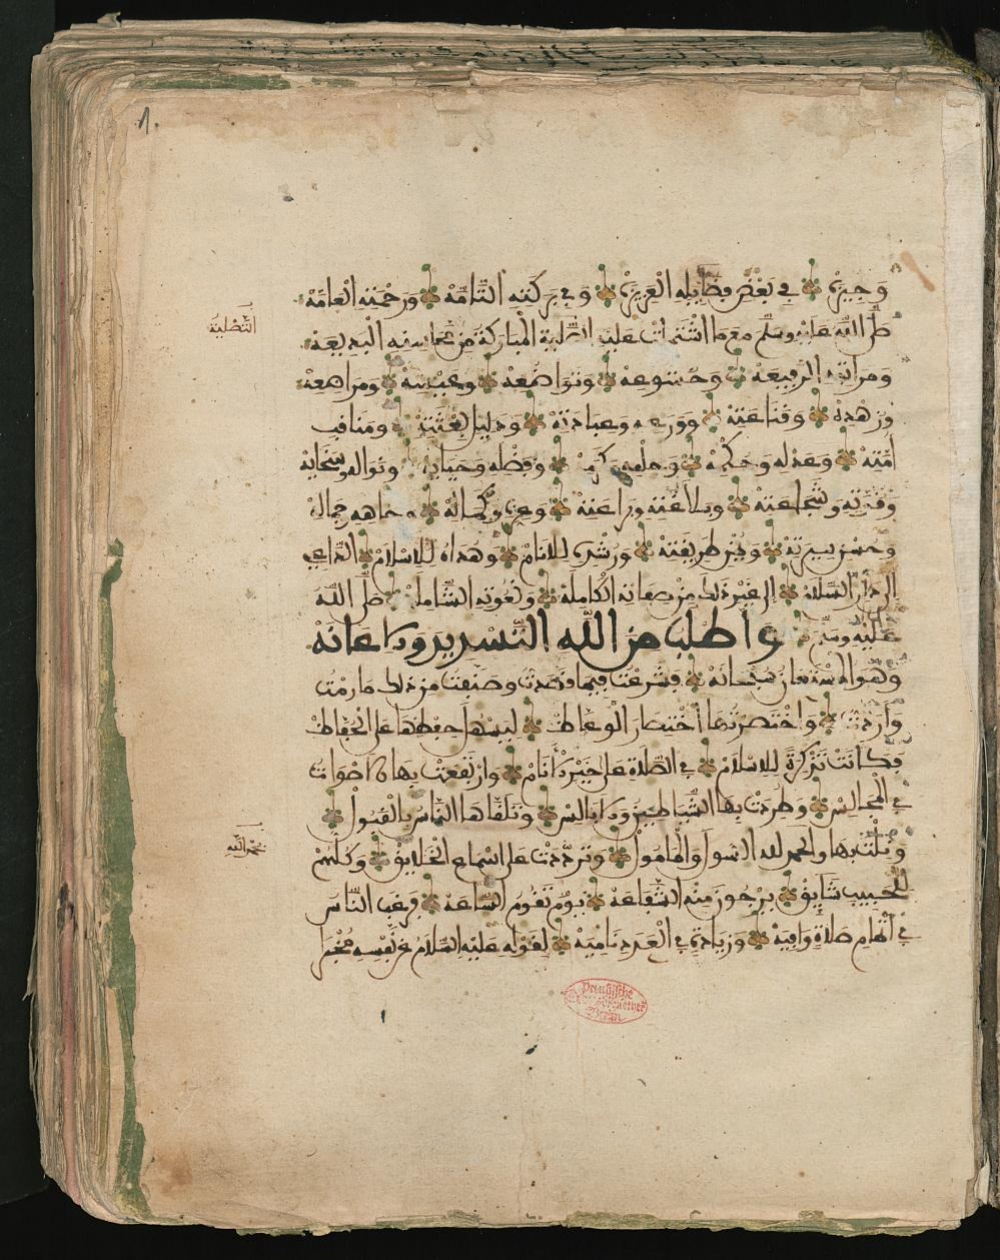 1.
وَجِيزَةٍ في بَعْضِ فَضَايِلِهِ الْعَزِيزَةْ وَفي بَرَكَتِهِ التَّامَّهْ وَرَحْمَتِهِ الْعَامَّهْ
صَلَّى اللَّهُ عَلَيْهِ وسَلَّم مع ما اشْتَمَلَتْ عليه المُبَارَكَةُ مِنْ مَحَاسِنِهِ الْبَدِيعَهْ
وَمَرَاتِبِهِ الرَّفِيعَهْ وَخُشُوعِهْ وَتَوَاضُعِهْ
وَزُهْدِهْ وَقَنَاعَتِهْ وَوَرَعِهِ وَعِبَادَتِهْ وَدَلِيلِ بِعْثَتِهْ وَمَنَاقِبِ
أُمَّتِهْ وَعَدْلِهِ وَحُكْمِهْ وَحِلْمِهِ وَفَضْلِهِ وَحَيَايِهْ ونَوَالِهِ وسَخَايِهْ
وَقُوَّتِهِ وشَجَاعَتِهْ وبَلاغَتِهِ وبَرَاعَتِهْ وَعِزِّهِ وكَمَالِهْ وجَاهِهِ وجَمَالِهْ
وَحُسْنِ سِيرَتِهْ وَيُمْنِ طَرِيقَتِهْ وَرُشْدِهِ لِلأَنَامْ وَهُدَاهُ لِلإسْلامْ الدَّاعِي
إلى دَارِ السَّلامْ إلى غَيْرِ ذَلِكَ مِنْ صِفَاتِهِ الْكَامِلَهْ وَنُعُوتِهِ الشَّامِلَهْ صَلَّى اللَّهُ
عَلَيْهِ وسَلَّم وَأَطْلُبُ مِنَ اللَّهِ التَّيْسِيرَ وَالإعَانَهْ
وَهُوَ الْمُسْتَعَانُ سُبْحَانَهْ فَشَرَعْتُ فِيمَا قَصَدتُّ وصَنَّفْتُ مِنْ ذَلِكَ مَا رُمْتُ
وَأَرَدتُّ وَاخْتَصَرْتُهَا اخْتِصَارَ الْوُعَّاظْ لِيَسْهُلَ حِفْظُهَا عَلَى الْحُفَّاظْ
فَكَانَتْ تَذْكِرَةً لِلإسْلامْ في الصَّلاةِ عَلَى خَيْرِ الأَنَامْ وَارْتَفَعَتْ بِهَا الأَصْوَاتُ
في الْمَجَالِسْ وَطُرِدَتْ بِهَا الشَّيَاطِينُ وَالأَبَالِسْ وَتَلَقَّاهَا النَّاسُ بِالْقَبُولْ
وَنِلْتُ بِهَا والحمد لله السُّولَ وَالْمَامُولْ وَتَرَدَّدَتْ عَلَى أَسْمَاعِ الْخَلايِقْ وَكُلُّهُمْ
لِلْحَبِيبِ شَايِقْ يَرْجُونَ مِنْهُ الشَّفَاعَهْ يَوْمَ تَقُومُ السَّاعَهْ فَرَغِبَ النَّاسُ
في إتْمَامِ صَلاةٍ وَافِيَهْ وَزِيَادَةٍ في الْعَدَدِ نَامِيَهْ لِقَوْلِهِ عَلَيْهِ السَّلامُ عَنْ نَفْسِهِ مُخْبِرًا
التَّصْلِيَة